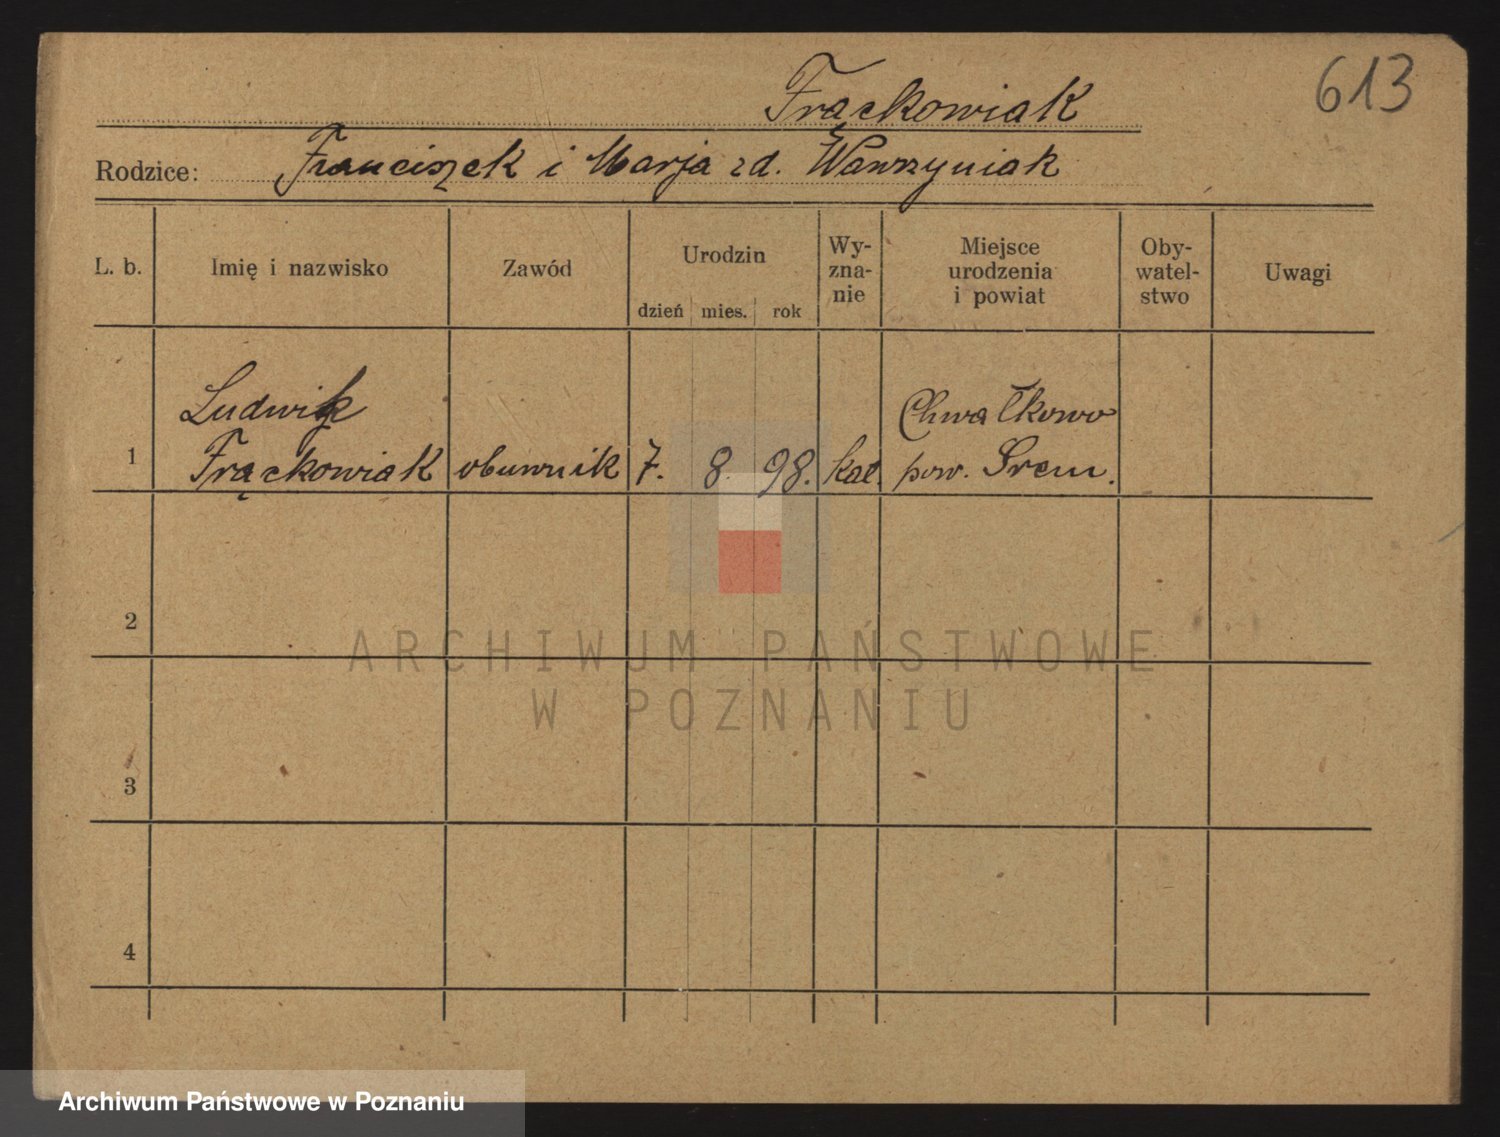 613
Frąckowiak
Rodzice: Franciszek i Marja zd. Wawrzyniak
L. b.
Imię i nazwisko
Zawód
Urodzin
dzień mies. rok
Wy-
zna-
nie
Miejsce
urodzenia
i powiat
Oby-
watel-
stwo
Uwagi
1
Ludwik
Frąckowiak
obuwnik
7. 8. 98.
kat.
Chwałkowo
pow. Śrem.
2
3
4
ARCHIWUM PAŃSTWOWE
W POZNANIU
Archiwum Państwowe w Poznaniu